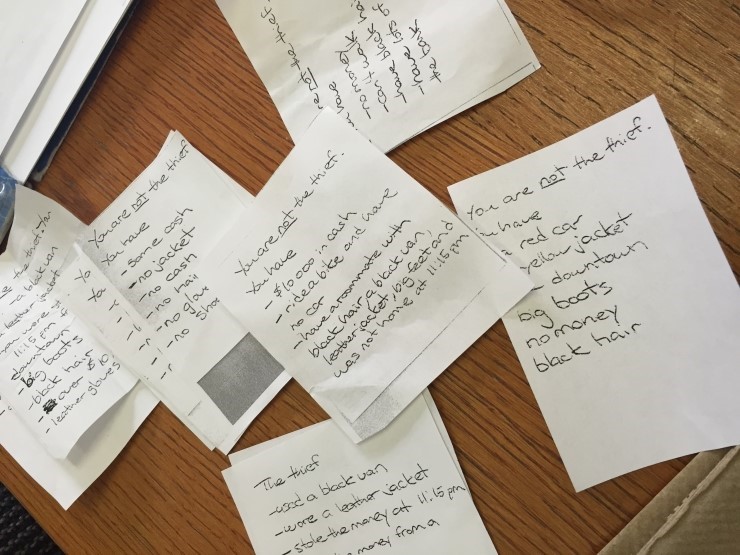 the thief
not
have
-no money
-can't walk
-have black
-have lots of
the bank
You are not the thief.
You have
a red car
yellow jacket
downtown
big boots
no money
black hair
You are not the thief.
You have
$10 000 in cash
-ride a bike and have
no car
-have a roommate with
black hair, a black van,
leather jacket, big feet and
was not home at 11:15 pm
You are not the thief
You have
some cash
-no jacket
-no cash
-no hair
-no glov
-no
shoe
the thief.
-a black van
leather jacket
you were at
11:15 pm
downtown
-big boots
-black hair
-over $10
-leather gloves
The thief
-used a black van
-wore a leather jacket
-stole the money at 11:15 pm
money from a